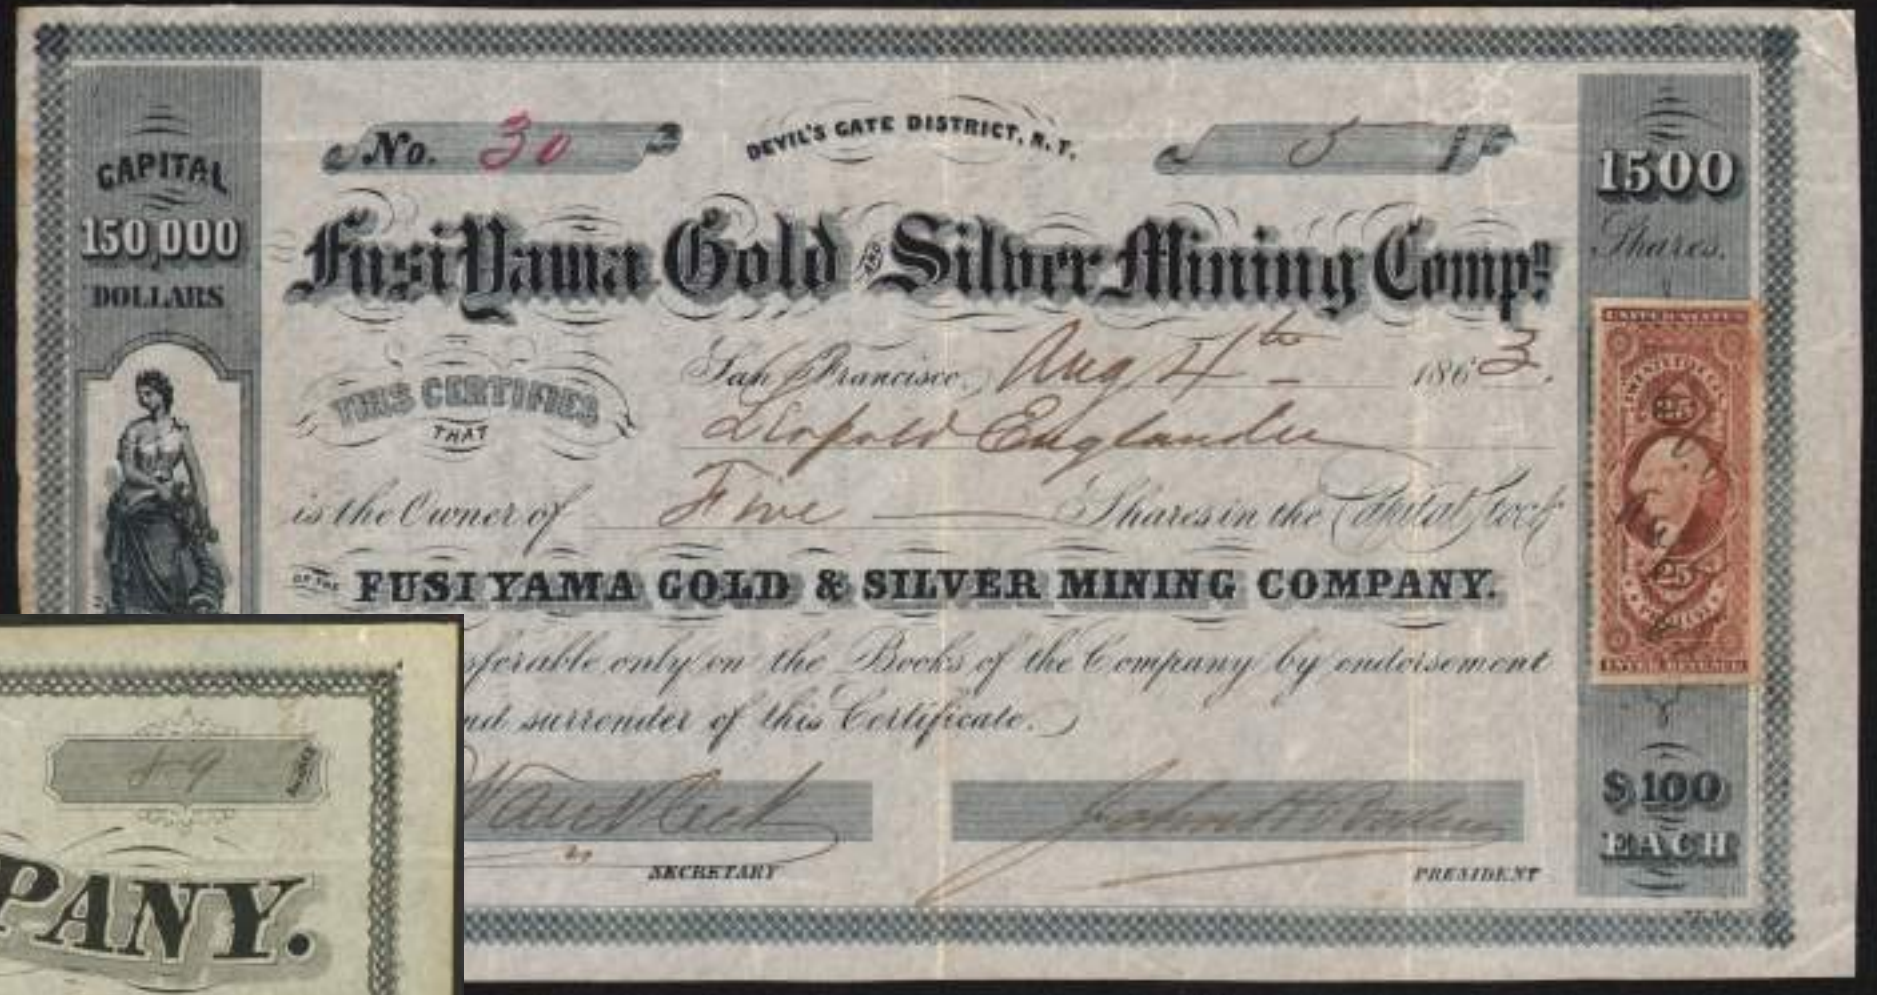 CAPITAL
150,000
DOLLARS
No. 30
DEVIL'S GATE DISTRICT, N.T.
5
1500
Shares.
Fusi Yama Gold AND Silver Mining Compy
San Francisco, Aug 4th 1863.
THIS CERTIFIES
THAT
Leopold Englander
is the Owner of Five Shares in the Capital Stock
OF THE FUSI YAMA GOLD & SILVER MINING COMPANY.
sferable only on the Books of the Company by endorsement
nd surrender of this Certificate.
SECRETARY
John
PRESIDENT
$100
EACH
UNITED STATES
25
25
INTER. REVENUE
PANY.